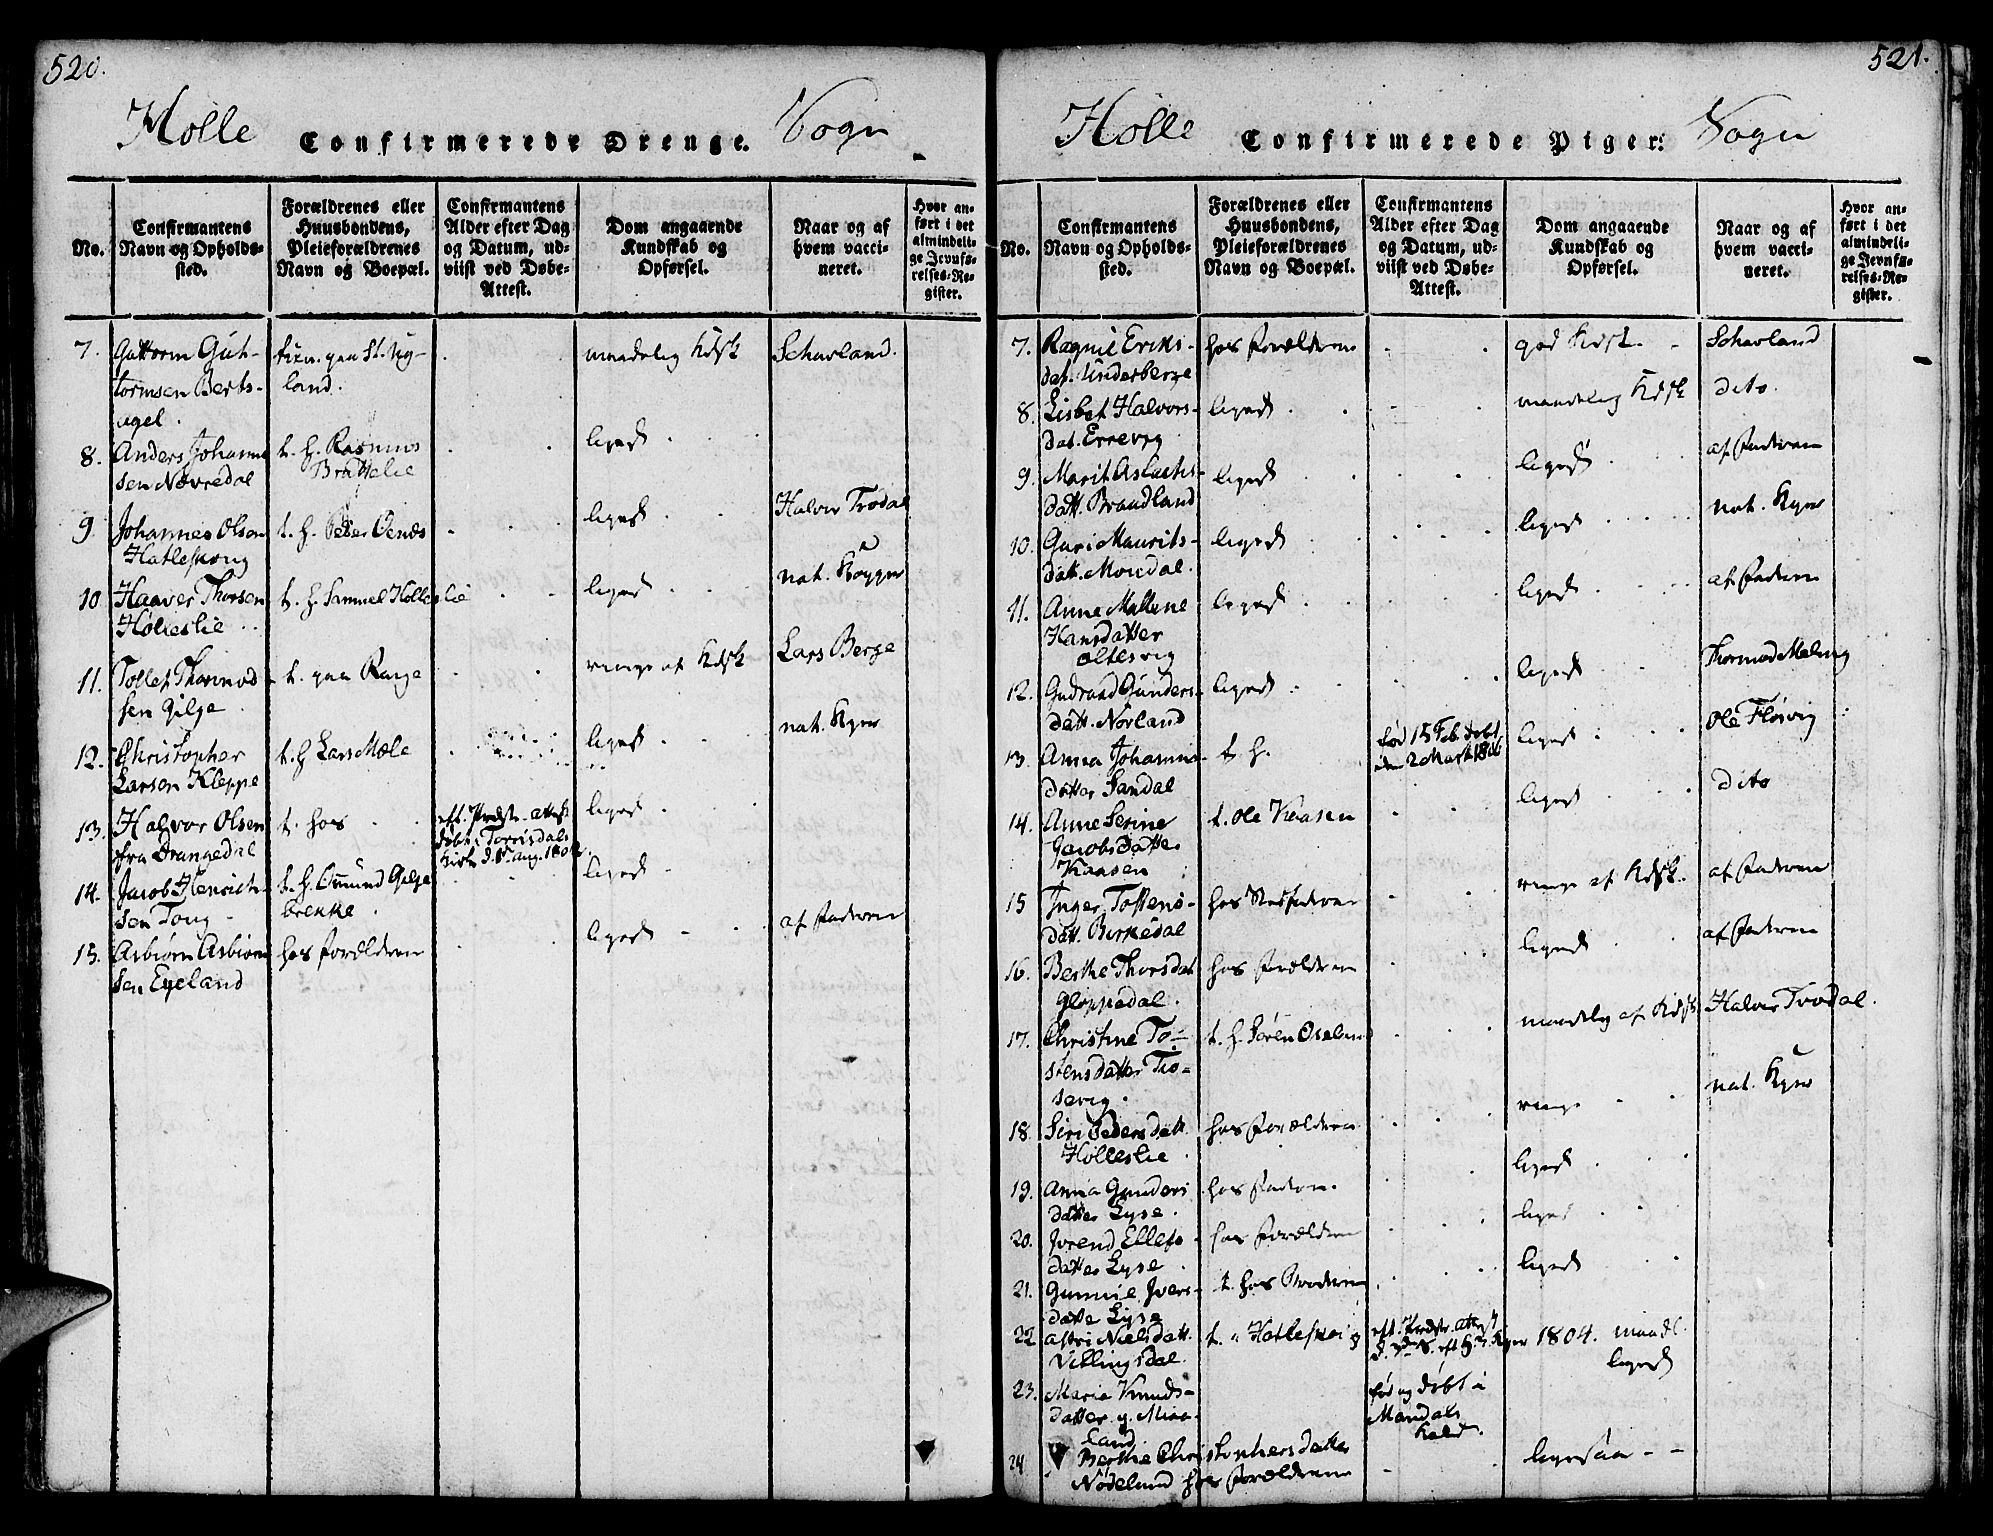 520.
Holle Confirmerede Drenge. Sogn
No.
Confirmantens
Navn og Opholds-
sted.
Forældrenes eller
Huusbondens,
Pleieforældrenes
Navn og Boepæl.
Confirmantens
Alder efter Dag
og Datum, ud-
viist ved Døbe-
Attest.
Dom angaaende
Kundskab og
Opførsel.
Naar og af
hvem vacci-
neret.
Hvor an-
ført i det
almindeli-
ge Jevnfø-
relses-Re-
gister.
7. Guttorm Gut-
tormsen Berts-
agel.
maadelig Kdsk
Scharland.
8. Anders Johanne
sen Nevredal
t. h. Rasmus
Brattelie
ligeds
9. Johannes Olsen
Hatleskong
t. h. Peder Oenæs
ligeds
Halver Trodal
10 Haaver Thorsen
Hølleslie
t. h. Samuel Hølleslie
ligeds
nat. Kopper
11. Tollef Thormod
sen Gilge
t. paa Rage
ringe af Kdsk
Lars Berge
12. Christopher
Larsen Kleppe
t. h Lars Mæle
ligeds
nat. Kper
13. Halvor Olsen
fra Drangedal
t. hos
eft. Prdstr. attest
døbt i Torrisdals
Kirke d. 5 Aug. 180
ligeds
14. Jacob Henrich-
sen Tong
t. h. Omund Gilge
brekke
ligeds
15. Asbiørn Asbiørn
sen Eyeland
hos Forældrene
ligeds
af Faderen
521.
Holle Confirmerede Piger. Sogn
No.
Confirmantens
Navn og Opholds-
sted.
Forældrenes eller
Huusbondens,
Pleieforældrenes
Navn og Boepæl.
Confirmantens
Alder efter Dag
og Datum, ud-
viist ved Døbe-
Attest.
Dom angaaende
Kundskab og
Opførsel.
Naar og af
hvem vacci-
neret.
Hvor an-
ført i det
almindeli-
ge Jevnfø-
relses-Re-
gister.
7. Ragnil Eriks-
dat. Underberge
hos Forældrene
god Kdsk.
Scharland
8. Lisbet Halvors-
dat. Errevig
ligeds
maadelig Kdsk
dito.
9. Marit Aslachs-
datt. Brandland
ligeds
ligeds
af Faderen
10. Guri Maurits-
datt. Moridal.
ligeds
ligeds
nat. Kper
11. Anne Mallene
Hansdatter
Oltesvig
ligeds
ligeds
af Faderen
12. Gudraad Gunders-
datt. Nørland
ligeds
ligeds
Thormod Meling
13. Anna Johanna
datter Sandal
t. h.
fød 15 Feb. døbt
2 Marti 180
ligeds
Ole Fløsvig
14. Anne Serine
Jacobsdatter
Kaasen
t. Ole Kaasen
ligeds
dito
15 Inger Tostens-
datt. Birkedal
hos Stedfaderen
ringe af Kdsk.
af Faderen
16. Berthe Thorsdat
Gloppedal.
hos Forældrene
ligeds
af Faderen
17. Christine To-
stensdatter Tio-
sevig.
t. h. Søren Oseland
maadelig af Kdsk
Halver Trodal.
18. Siri Pedersdatt.
Hølleslie
hos Forældrene
ringe
nat. Kper
19. Anna Gunders
datter Lyse.
hos Faderen.
ligeds
20. Jorend Ellefs-
datter Lyse.
hos Forældrene
ligeds
21. Gunnil Ivers-
datter Lyse
t. hos Broderen
ligeds
22 Astri Nielsdatt.
Vellingsdal.
t. " Hatleskog
eft. Prdstr. attest
1804. maadl.
ligeds
23. Maria Knuds-
datter
land
fød og døbt i
Mandals
Kald.
24 Berthe Christophersdatter
Nødeland hos Forældrene
ligesaa - -